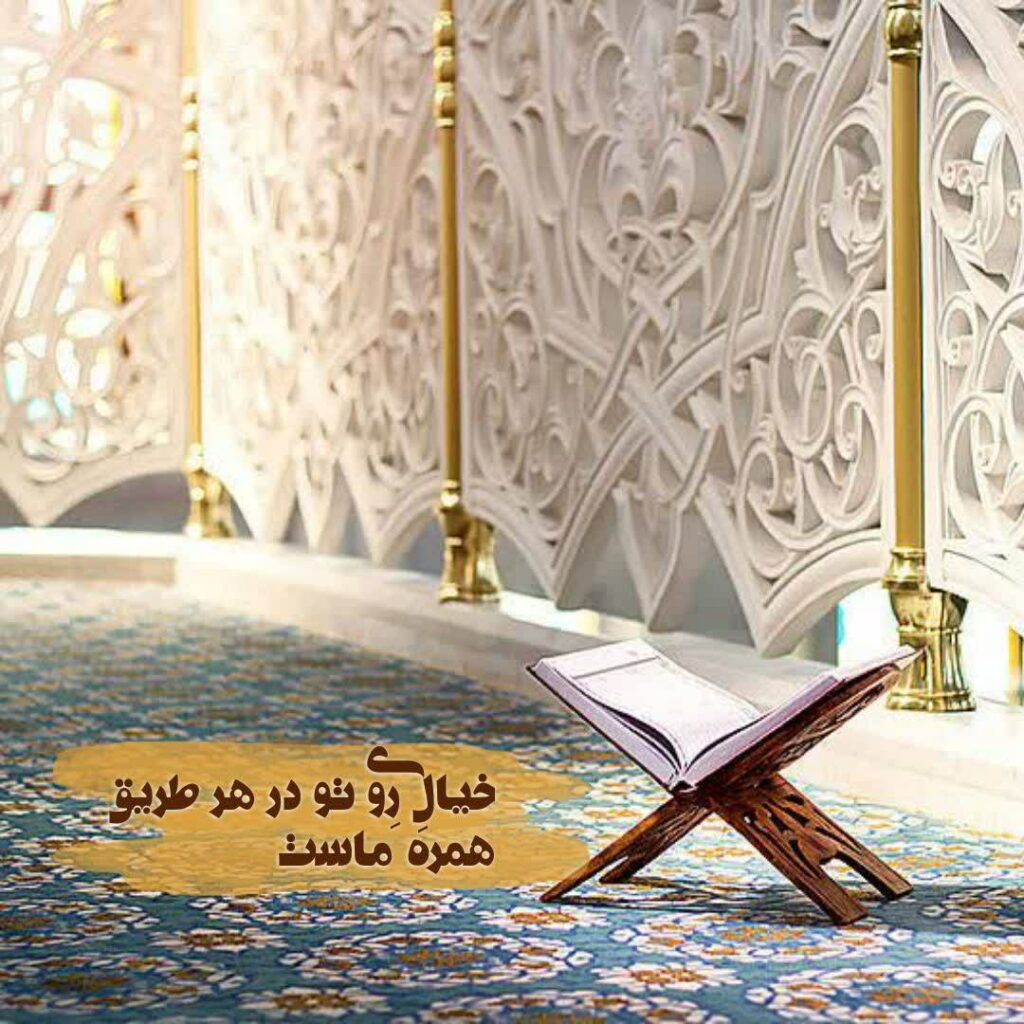 خیالِ رِویِ تو در هر طریق
همرهِ ماست